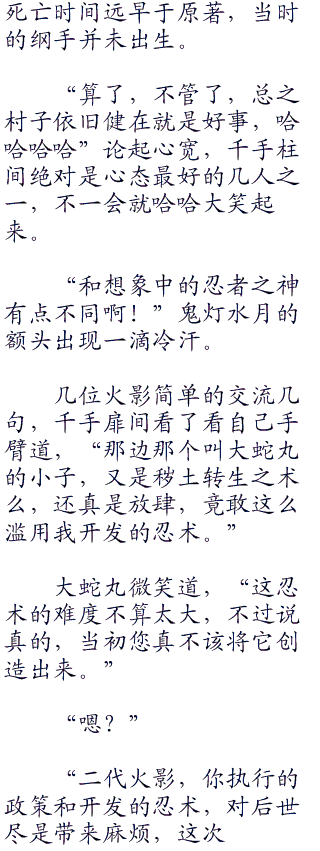 死亡时间远早于原著，当时
的纲手并未出生。
“算了，不管了，总之
村子依旧健在就是好事，哈
哈哈哈”论起心宽，千手柱
间绝对是心态最好的几人之
一，不一会就哈哈大笑起
来。
“和想象中的忍者之神
有点不同啊！”鬼灯水月的
额头出现一滴冷汗。
几位火影简单的交流几
句，千手扉间看了看自己手
臂道，“那边那个叫大蛇丸
的小子，又是秽土转生之术
么，还真是放肆，竟敢这么
滥用我开发的忍术。”
大蛇丸微笑道，“这忍
术的难度不算太大，不过说
真的，当初您真不该将它创
造出来。”
“嗯？”
“二代火影，你执行的
政策和开发的忍术，对后世
尽是带来麻烦，这次